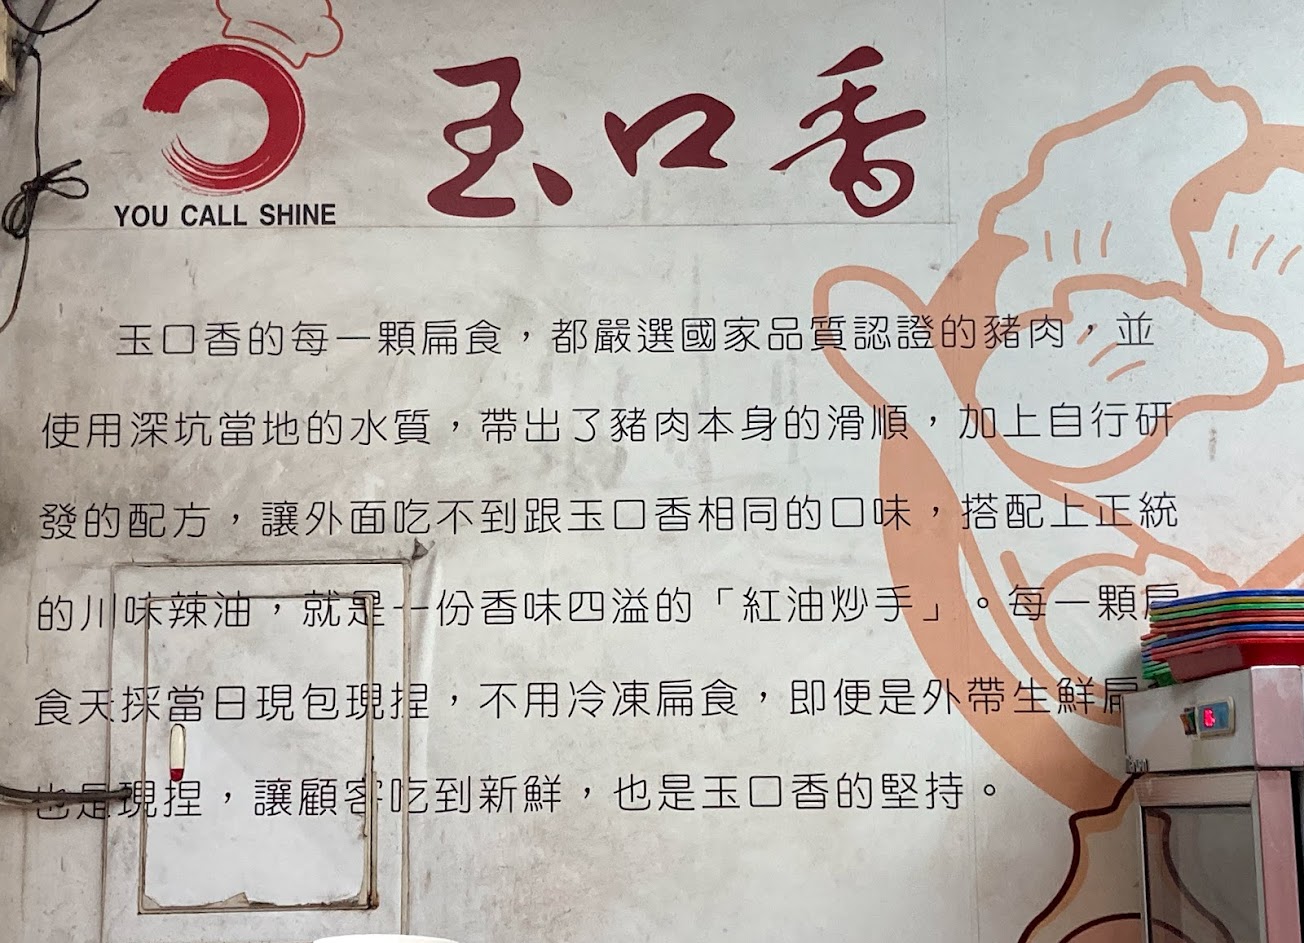 YOU CALL SHINE
玉口香
玉口香的每一顆扁食，都嚴選國家品質認證的豬肉，並
使用深坑當地的水質，帶出了豬肉本身的滑順，加上自行研
發的配方，讓外面吃不到跟玉口香相同的口味，搭配上正統
的川味辣油，就是一份香味四溢的「紅油炒手」。每一顆扁
食天採當日現包現捏，不用冷凍扁食，即便是外帶生鮮扁
也是現捏，讓顧客吃到新鮮，也是玉口香的堅持。